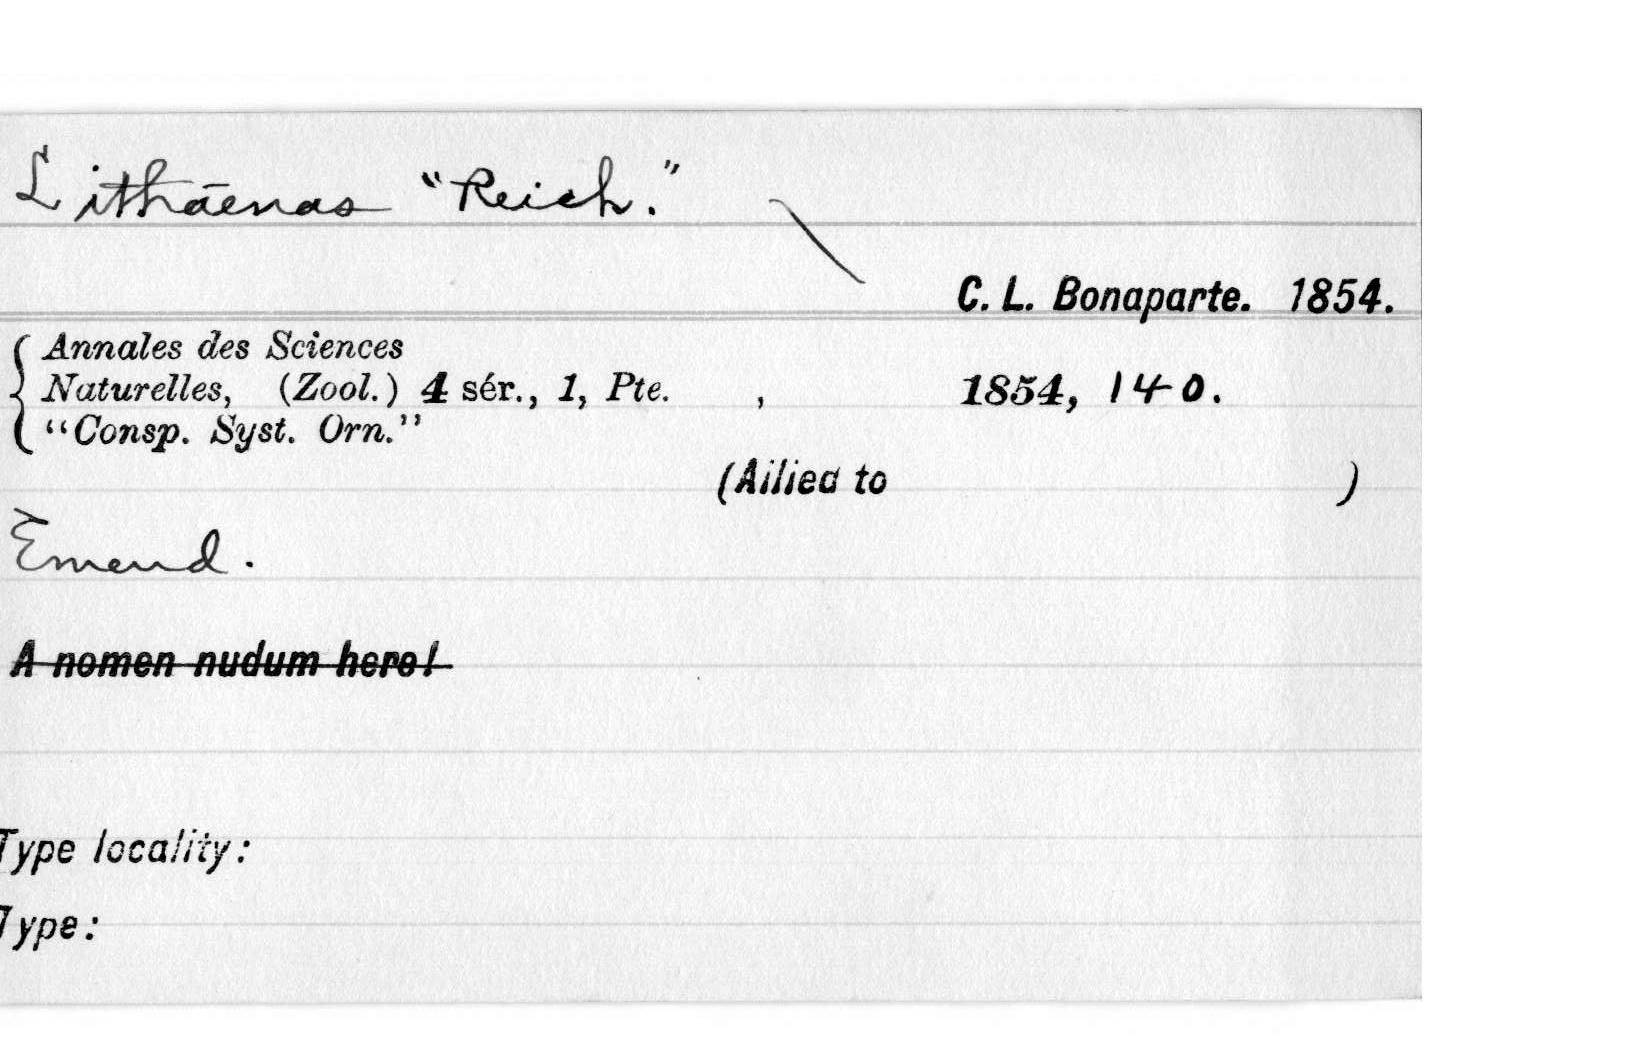 Lithāenas "Reich."
C. L. Bonaparte. 1854.
Annales des Sciences
Naturelles, (Zool.) 4 sér., 1, Pte. , 1854, 140.
"Consp. Syst. Orn."
(Allied to )
Emend.
A nomen nudum here!
Type locality:
Type: